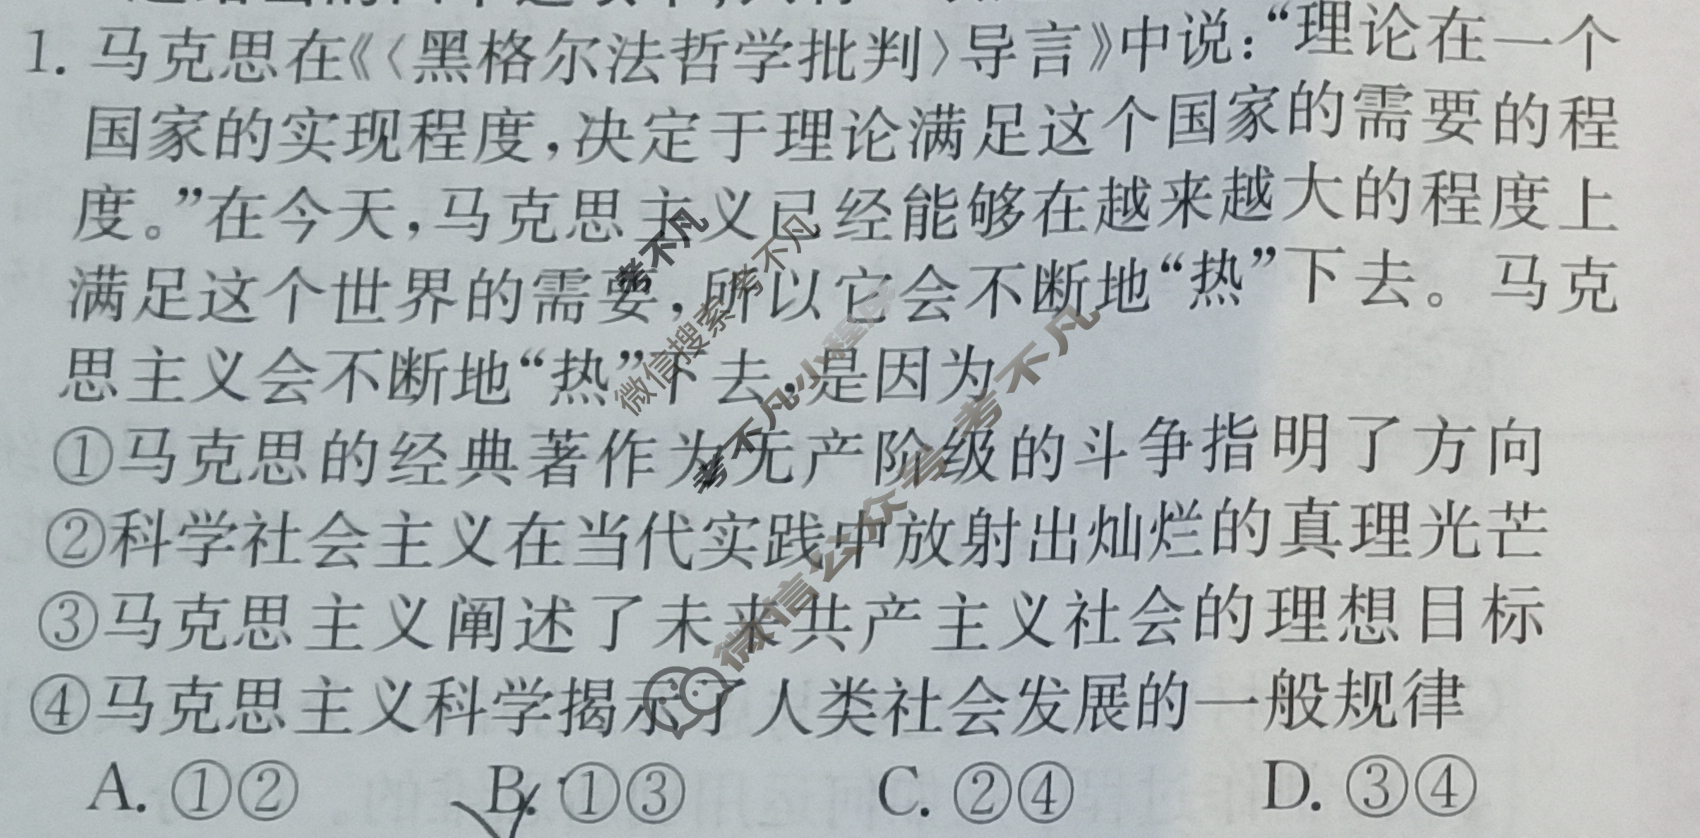 1. 马克思在《〈黑格尔法哲学批判〉导言》中说：“理论在一个
国家的实现程度，决定于理论满足这个国家的需要的程
度。”在今天，马克思主义已经能够在越来越大的程度上
满足这个世界的需要，所以它会不断地“热”下去。马克
思主义会不断地“热”下去，是因为
①马克思的经典著作为无产阶级的斗争指明了方向
②科学社会主义在当代实践中放射出灿烂的真理光芒
③马克思主义阐述了未来共产主义社会的理想目标
④马克思主义科学揭示了人类社会发展的一般规律
A. ①② B. ①③ C. ②④ D. ③④
考不凡
微信搜索考不凡
考不凡小程序
微信公众号考不凡